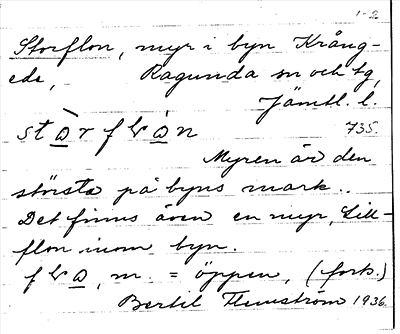 1-2
Storflon, myr i byn Krång-
ede, Ragunda sn och tg,
Jämtl. l.
735.
Myren är den
största på byns mark.
Det finns även en myr, Lill-
flon inom byn.
m. = öppen, (fork.)
Bertil Flemström 1936.